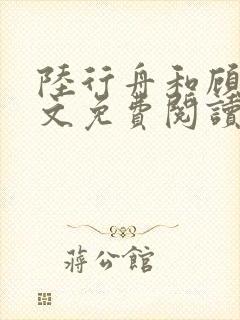 陸行舟和顾
文免費閱讀
蔣公館